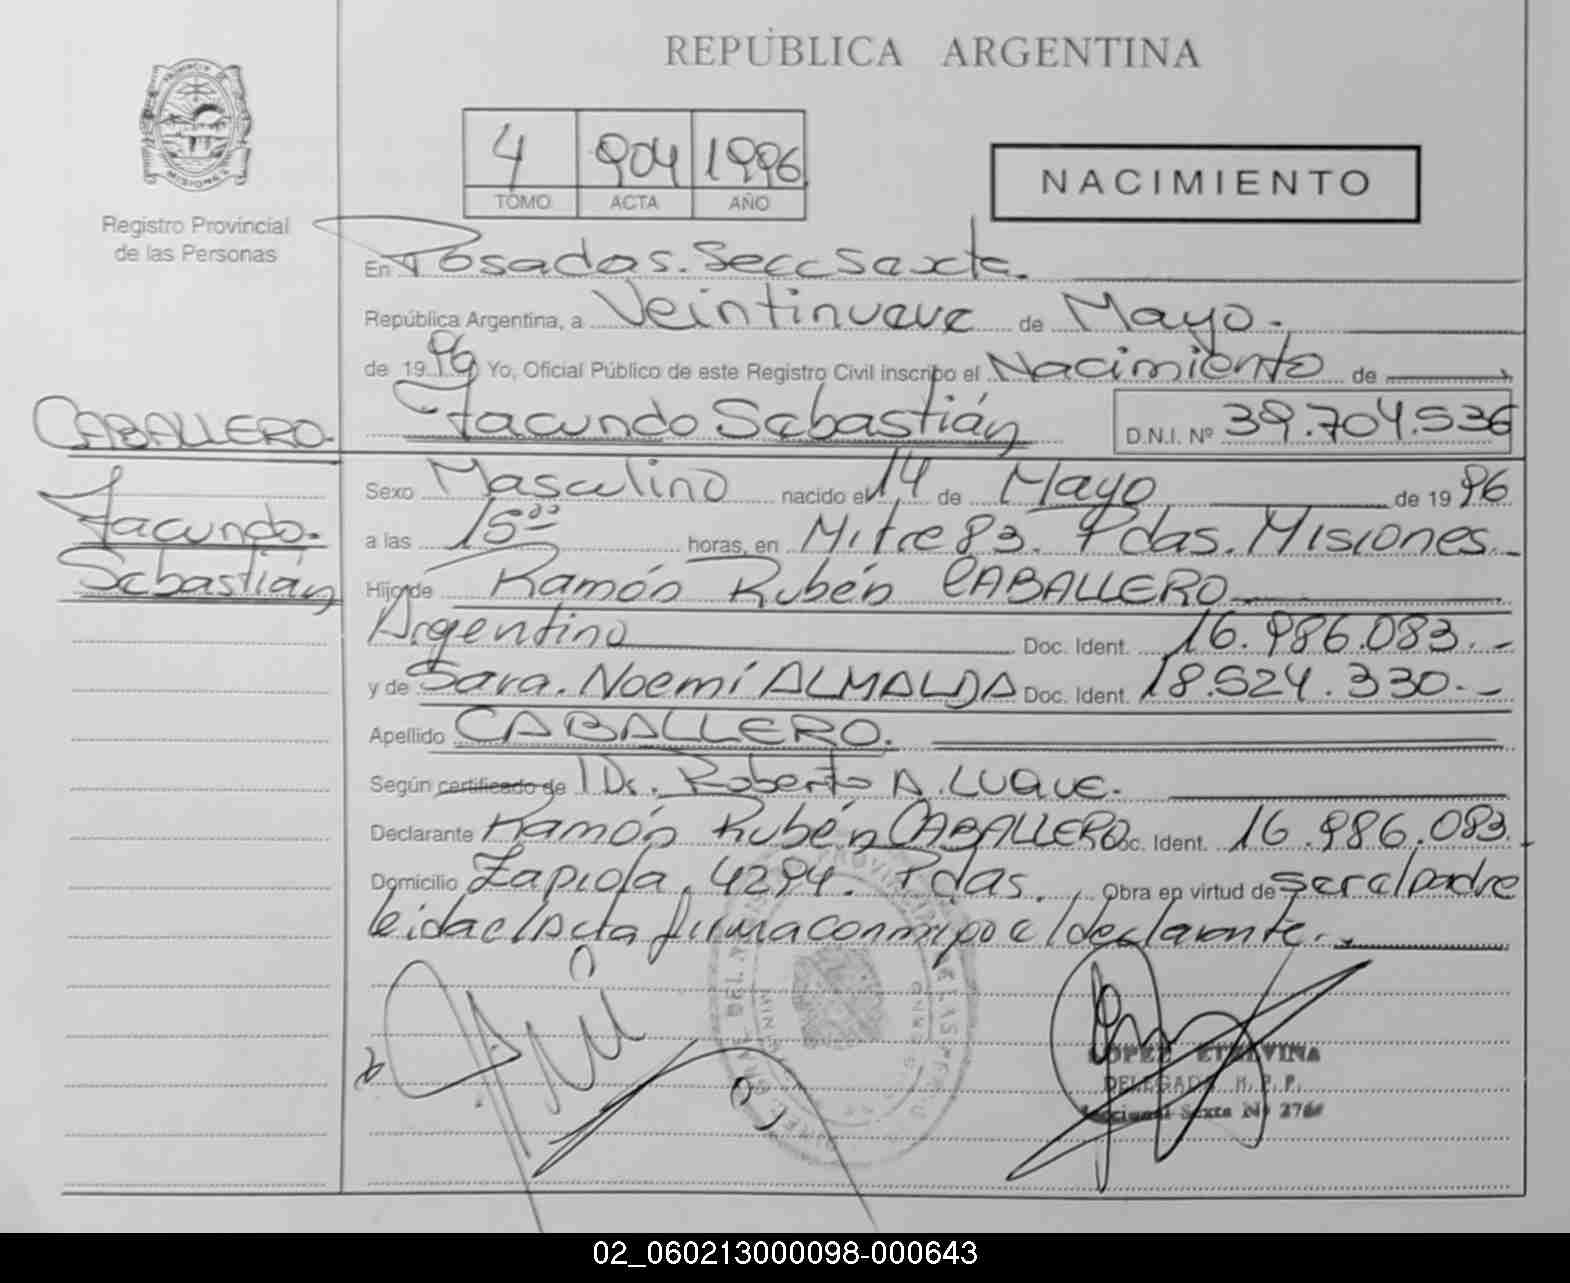 REPÚBLICA ARGENTINA
PROVINCIA DE
MISIONES
Registro Provincial
de las Personas
4 904 1996
TOMO ACTA AÑO
NACIMIENTO
En Posadas. Secc Sexta.
República Argentina, a Veintinueve de Mayo.
de 1996 Yo, Oficial Público de este Registro Civil inscribo el Nacimiento de
CABALLERO. Facundo Sebastián D.N.I. Nº 39.704.536
Facundo.
Sebastián
Sexo Masculino nacido el 14 de Mayo de 1996
a las 15⁰⁰ horas, en Mitre 83. Pdas. Misiones.
Hijo de Ramón Rubén CABALLERO
Argentino Doc. Ident. 16.986.083.-
y de Sara. Noemí ALMALDA Doc. Ident. 18.524.330.-
Apellido CABALLERO.
Según certificado de Dr. Roberto A. LUQUE.
Declarante Ramón Rubén CABALLERO Doc. Ident. 16.986.083.
Domicilio Zapiola. 4294. Pdas. Obra en virtud de ser el padre
leida el Acta firma conmigo el declarante.
LOPEZ ETELVINA
DELEGADA R. P. P.
Seccional Sexta Nº
02_060213000098-000643